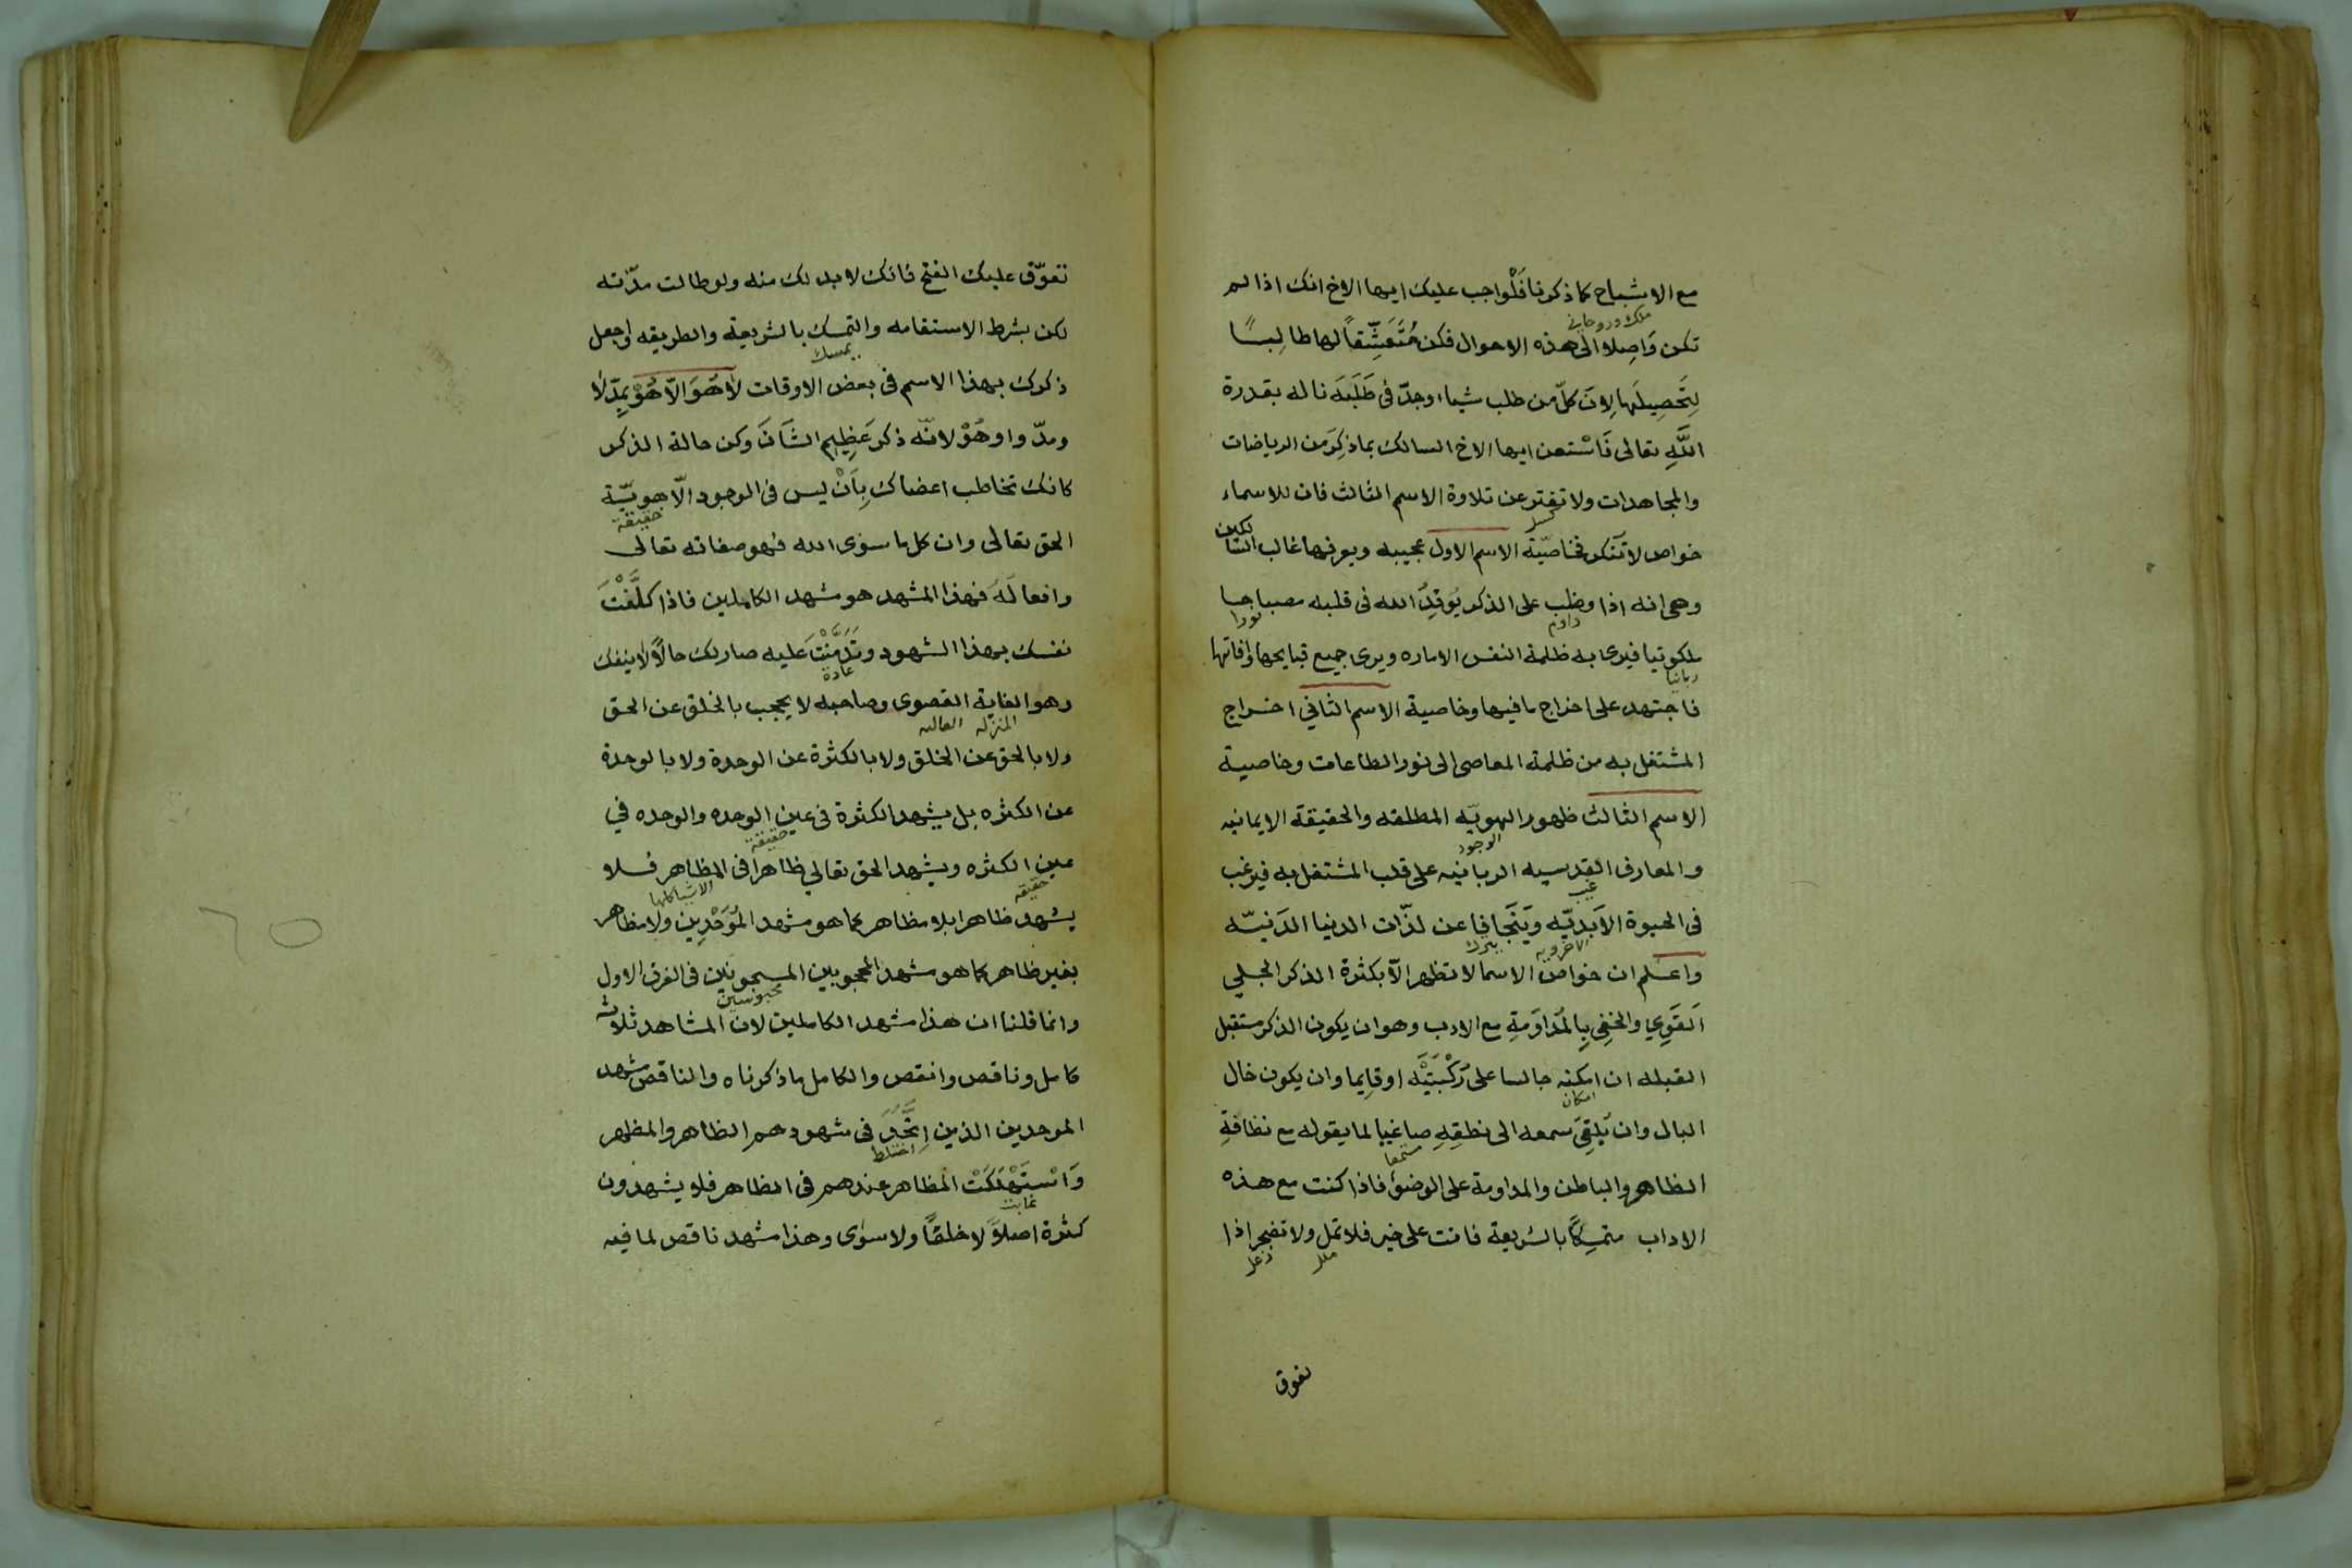 مع الاشباح كما ذكرنا فَلْواجب عليك ايها الاخ انك اذا لم
ملك وروحاني
تكن وَاصِلا الى هذه الاحوال فكن مُتَعَشِّقاً لها طالِبــًا
لِتَحصِيلَها لِانَ كلّ من طلب شيا، وجدّ فى طَلَبَه ناله بقدرة
اللَّهِ تعالى فَاسْتعن ايها الاخ السالك بما ذكِرَ من الرياضات
والمجاهدات ولا تفتر عن تلاوة الاسم الثالث فان للاسماء
كسل
خواص لا تَنكر فخاصّيّة الاسم الاول عجيبه ويعرفها غالب السّا
لكين
وهى انه اذا وظب على الذكر يُوقِدُ الله فى قلبه مصباحــا
داوم نورا
ملكوتيا فيرى به ظلمة النفس الاماره ويرى جميع قبايحها وآفاتها
ربانيا
فاجتهد على اخراج ما فيها وخاصية الاسم الثاني اخــراج
المشتغل به من ظلمة المعاصى الى نور الطاعات وخاصيــة
الاسم الثالث ظهور الهويّه المطلقه والحقيقة الايمانيه
الوجود
والمعارف القدسيه الربانيه على قلب المشتغل به فيرغب
غيب
فى الحيوة الاَبديّه وَيَتَجَافا عن لذّات الدنيا الدَنيّــه
الاخرويه يترك
واعــلم ان خواصّ الاسما لا تظهر الّا بكثرة الذكر الجــلي
القَوِي والخفي بِالمُداوَمَةِ مع الادب وهو ان يكون الذكر مستقبل
القبله ان امكنه جالسا على رُكْبَتَيْه او قايما وان يكون خال
امكان
البال وان يُلقِىَ سمعه الى نطقِهِ صاغيا لما يقوله مع نظافةِ
ستمعا
الظاهر والباطن والمداومة على الوضوء فاذا كنت مع هــذه
الاداب متمسِكًا بالشريعة فانت على خير فلا تمل ولا تضجر اذا
ملل زعل
تعوق
تعوّق عليك الفتح فانك لا بد لك منه ولو طالت مدّته
لكن بشرط الاستقامه والتمسك بالشريعة والطريقه واجعل
يمسك
ذكرك بهذا الاسم فى بعض الاوقات لَا هُوَ الّا هُوْ بِمدّ لا
ومدّ واو هُوْ لانّه ذكر عَظِيم الشَأنَ وكن حالة الذكر
كانك تخاطب اعضاك بِاَنْ ليس فى الوجود الّا هويّــة
حقيقة
الحق تعالى وان كل ما سوى الله فهو صفاته تعالى
وافعالَهُ فهذا المشهد هو مشهد الكاملين فاذا كَلَّفْتَ
نفسك بهذا الشهود وَتَدَمَّنْتَ عليه صار لك حالًا لا ينفك
عادة
وهو الغاية القصوى وصاحبه لا يحجب بالخلق عن الحق
المنزله العاليه
ولا بالحق عن الخلق ولا بالكثرة عن الوحدة ولا بالوحدة
عن الكثره بل يشهد الكثرة فى عين الوحده والوحده في
حقيقة
عين الكثره ويشهد الحق تعالي ظاهرا فى المظاهر فــلا
حقيقه الاشيا كلها
يشهد ظاهرا بلا مظاهر كما هو مشهد المُوَحْدِين ولا مظاهر
بغير ظاهر كما هو مشهد المحجوبين المسجونين فى الفرق الاول
محبوسين
وانما قلنا ان هذا مشهد الكاملين لان المشاهد ثلاثه
كامل وناقص وانقص والكامل ما ذكرناه والناقص مشهد
الموحدين الذين اِتَّحَدَ فى شهودهم الظاهر والمظهر
اختلط
وَاسْتَهْلَكَتْ المظاهر عندهم فى الظاهر فلا يشهدون
غابت
كثرة اصلاً لا خلقاً ولا سوى وهذا مشهد ناقص لما فيه
٦٥